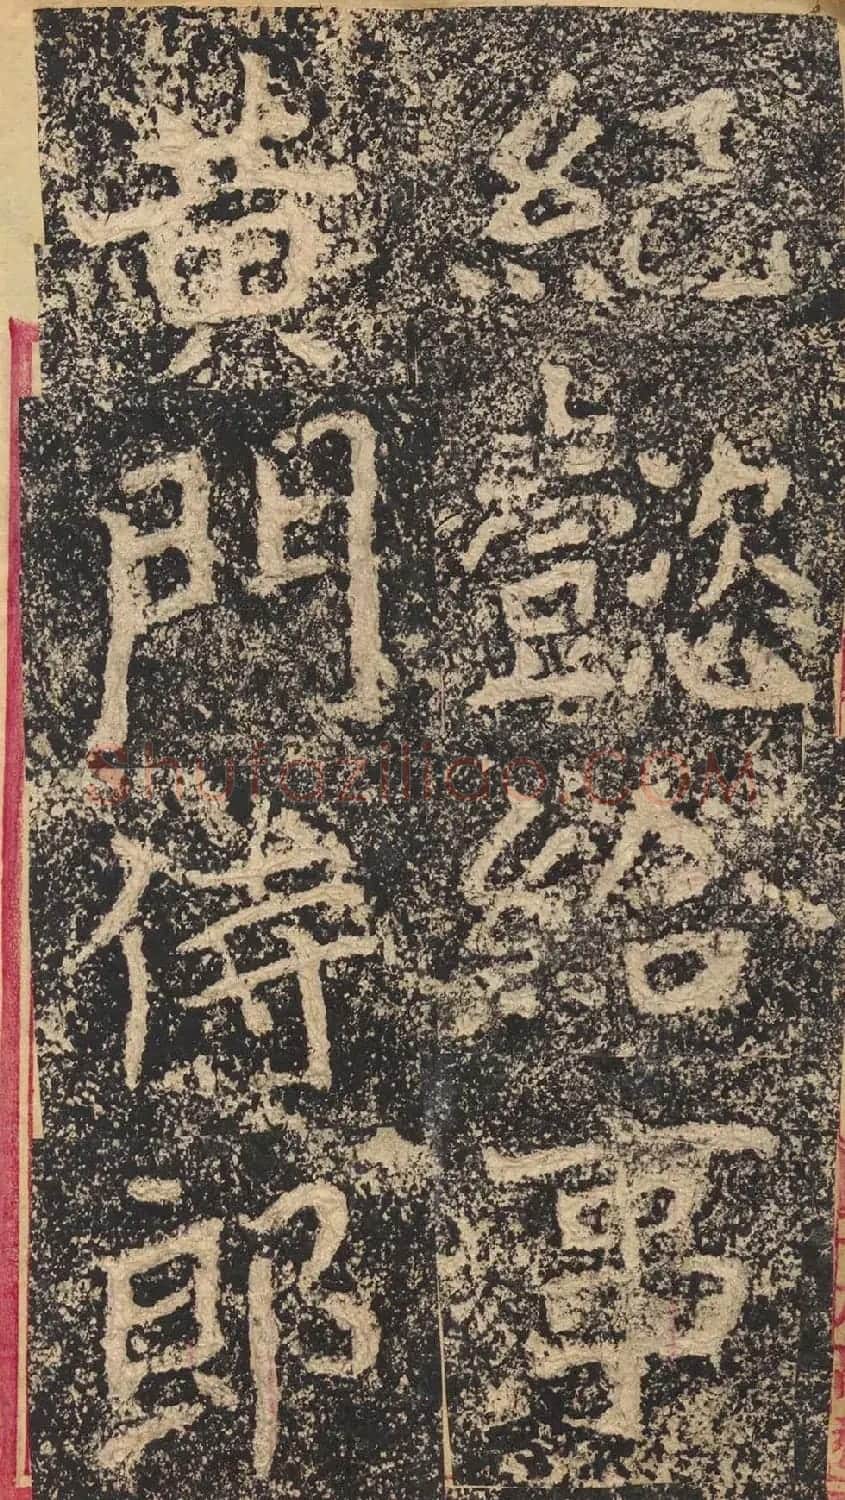 紀懿給事
黃門侍郎
shufaziliao.COM